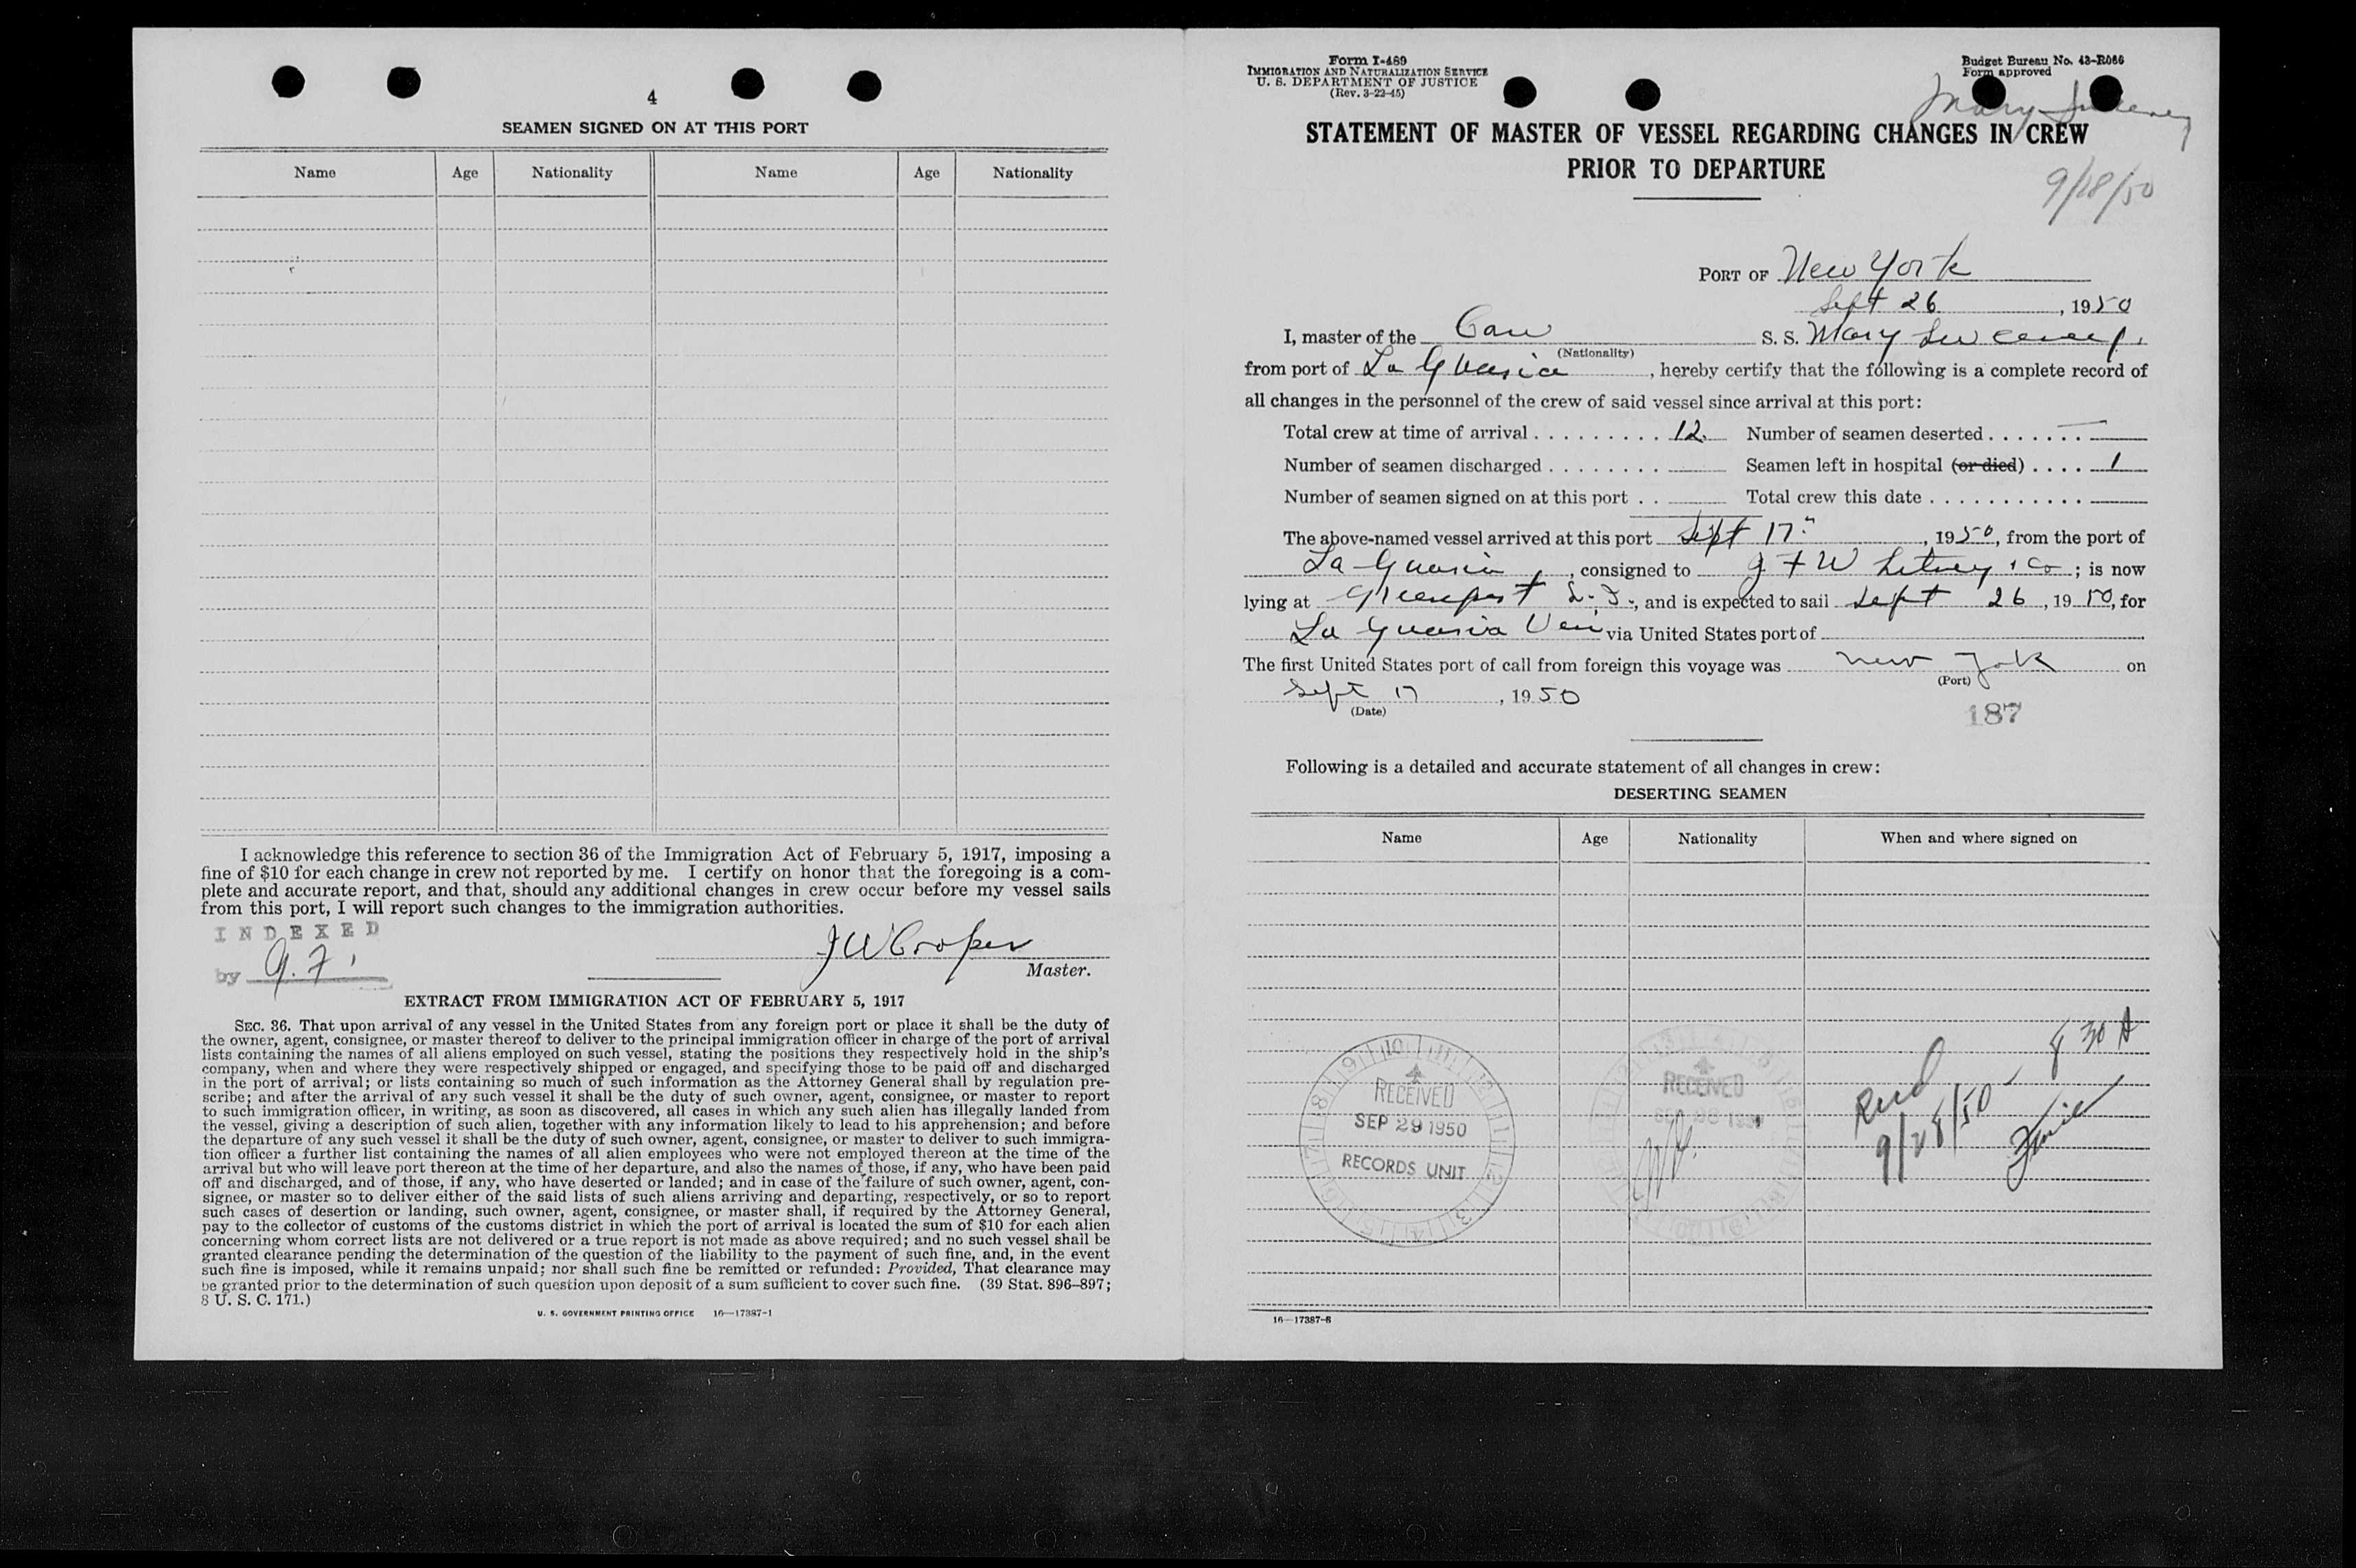 4
SEAMEN SIGNED ON AT THIS PORT
Name Age Nationality Name Age Nationality
I acknowledge this reference to section 36 of the Immigration Act of February 5, 1917, imposing a
fine of $10 for each change in crew not reported by me. I certify on honor that the foregoing is a com-
plete and accurate report, and that, should any additional changes in crew occur before my vessel sails
from this port, I will report such changes to the immigration authorities.
INDEXED
by
J W Cooper
Master.
EXTRACT FROM IMMIGRATION ACT OF FEBRUARY 5, 1917
SEC. 36. That upon arrival of any vessel in the United States from any foreign port or place it shall be the duty of
the owner, agent, consignee, or master thereof to deliver to the principal immigration officer in charge of the port of arrival
lists containing the names of all aliens employed on such vessel, stating the positions they respectively hold in the ship's
company, when and where they were respectively shipped or engaged, and specifying those to be paid off and discharged
in the port of arrival; or lists containing so much of such information as the Attorney General shall by regulation pre-
scribe; and after the arrival of any such vessel it shall be the duty of such owner, agent, consignee, or master to report
to such immigration officer, in writing, as soon as discovered, all cases in which any such alien has illegally landed from
the vessel, giving a description of such alien, together with any information likely to lead to his apprehension; and before
the departure of any such vessel it shall be the duty of such owner, agent, consignee, or master to deliver to such immigra-
tion officer a further list containing the names of all alien employees who were not employed thereon at the time of the
arrival but who will leave port thereon at the time of her departure, and also the names of those, if any, who have been paid
off and discharged, and of those, if any, who have deserted or landed; and in case of the failure of such owner, agent, con-
signee, or master so to deliver either of the said lists of such aliens arriving and departing, respectively, or so to report
such cases of desertion or landing, such owner, agent, consignee, or master shall, if required by the Attorney General,
pay to the collector of customs of the customs district in which the port of arrival is located the sum of $10 for each alien
concerning whom correct lists are not delivered or a true report is not made as above required; and no such vessel shall be
granted clearance pending the determination of the question of the liability to the payment of such fine, and, in the event
such fine is imposed, while it remains unpaid; nor shall such fine be remitted or refunded: Provided, That clearance may
be granted prior to the determination of such question upon deposit of a sum sufficient to cover such fine. (39 Stat. 896–897;
8 U. S. C. 171.)
U. S. GOVERNMENT PRINTING OFFICE 16—17387-1
Form I-489
IMMIGRATION AND NATURALIZATION SERVICE
U. S. DEPARTMENT OF JUSTICE
(Rev. 3-22-45)
Budget Bureau No. 43-R066
Form approved
Mary Sweeney
STATEMENT OF MASTER OF VESSEL REGARDING CHANGES IN CREW
PRIOR TO DEPARTURE
9/28/50
PORT OF New York
Sept 26, 1950
I, master of the Can S. S. Mary Sweeney
(Nationality)
from port of La Guaria, hereby certify that the following is a complete record of
all changes in the personnel of the crew of said vessel since arrival at this port:
Total crew at time of arrival 12. Number of seamen deserted —
Number of seamen discharged Seamen left in hospital (or died) 1
Number of seamen signed on at this port Total crew this date
The above-named vessel arrived at this port Sept 17, 1950, from the port of
La Guaria, consigned to J F W & Co; is now
lying at Greenport L. I., and is expected to sail Sept 26, 1950, for
La Guaria Ven via United States port of
The first United States port of call from foreign this voyage was New York on
(Port)
Sept 17, 1950
(Date)
187
Following is a detailed and accurate statement of all changes in crew:
DESERTING SEAMEN
Name Age Nationality When and where signed on
RECEIVED
SEP 29 1950
RECORDS UNIT
RECEIVED
Recd
9/28/50 - 8 30 A
16—17387-8